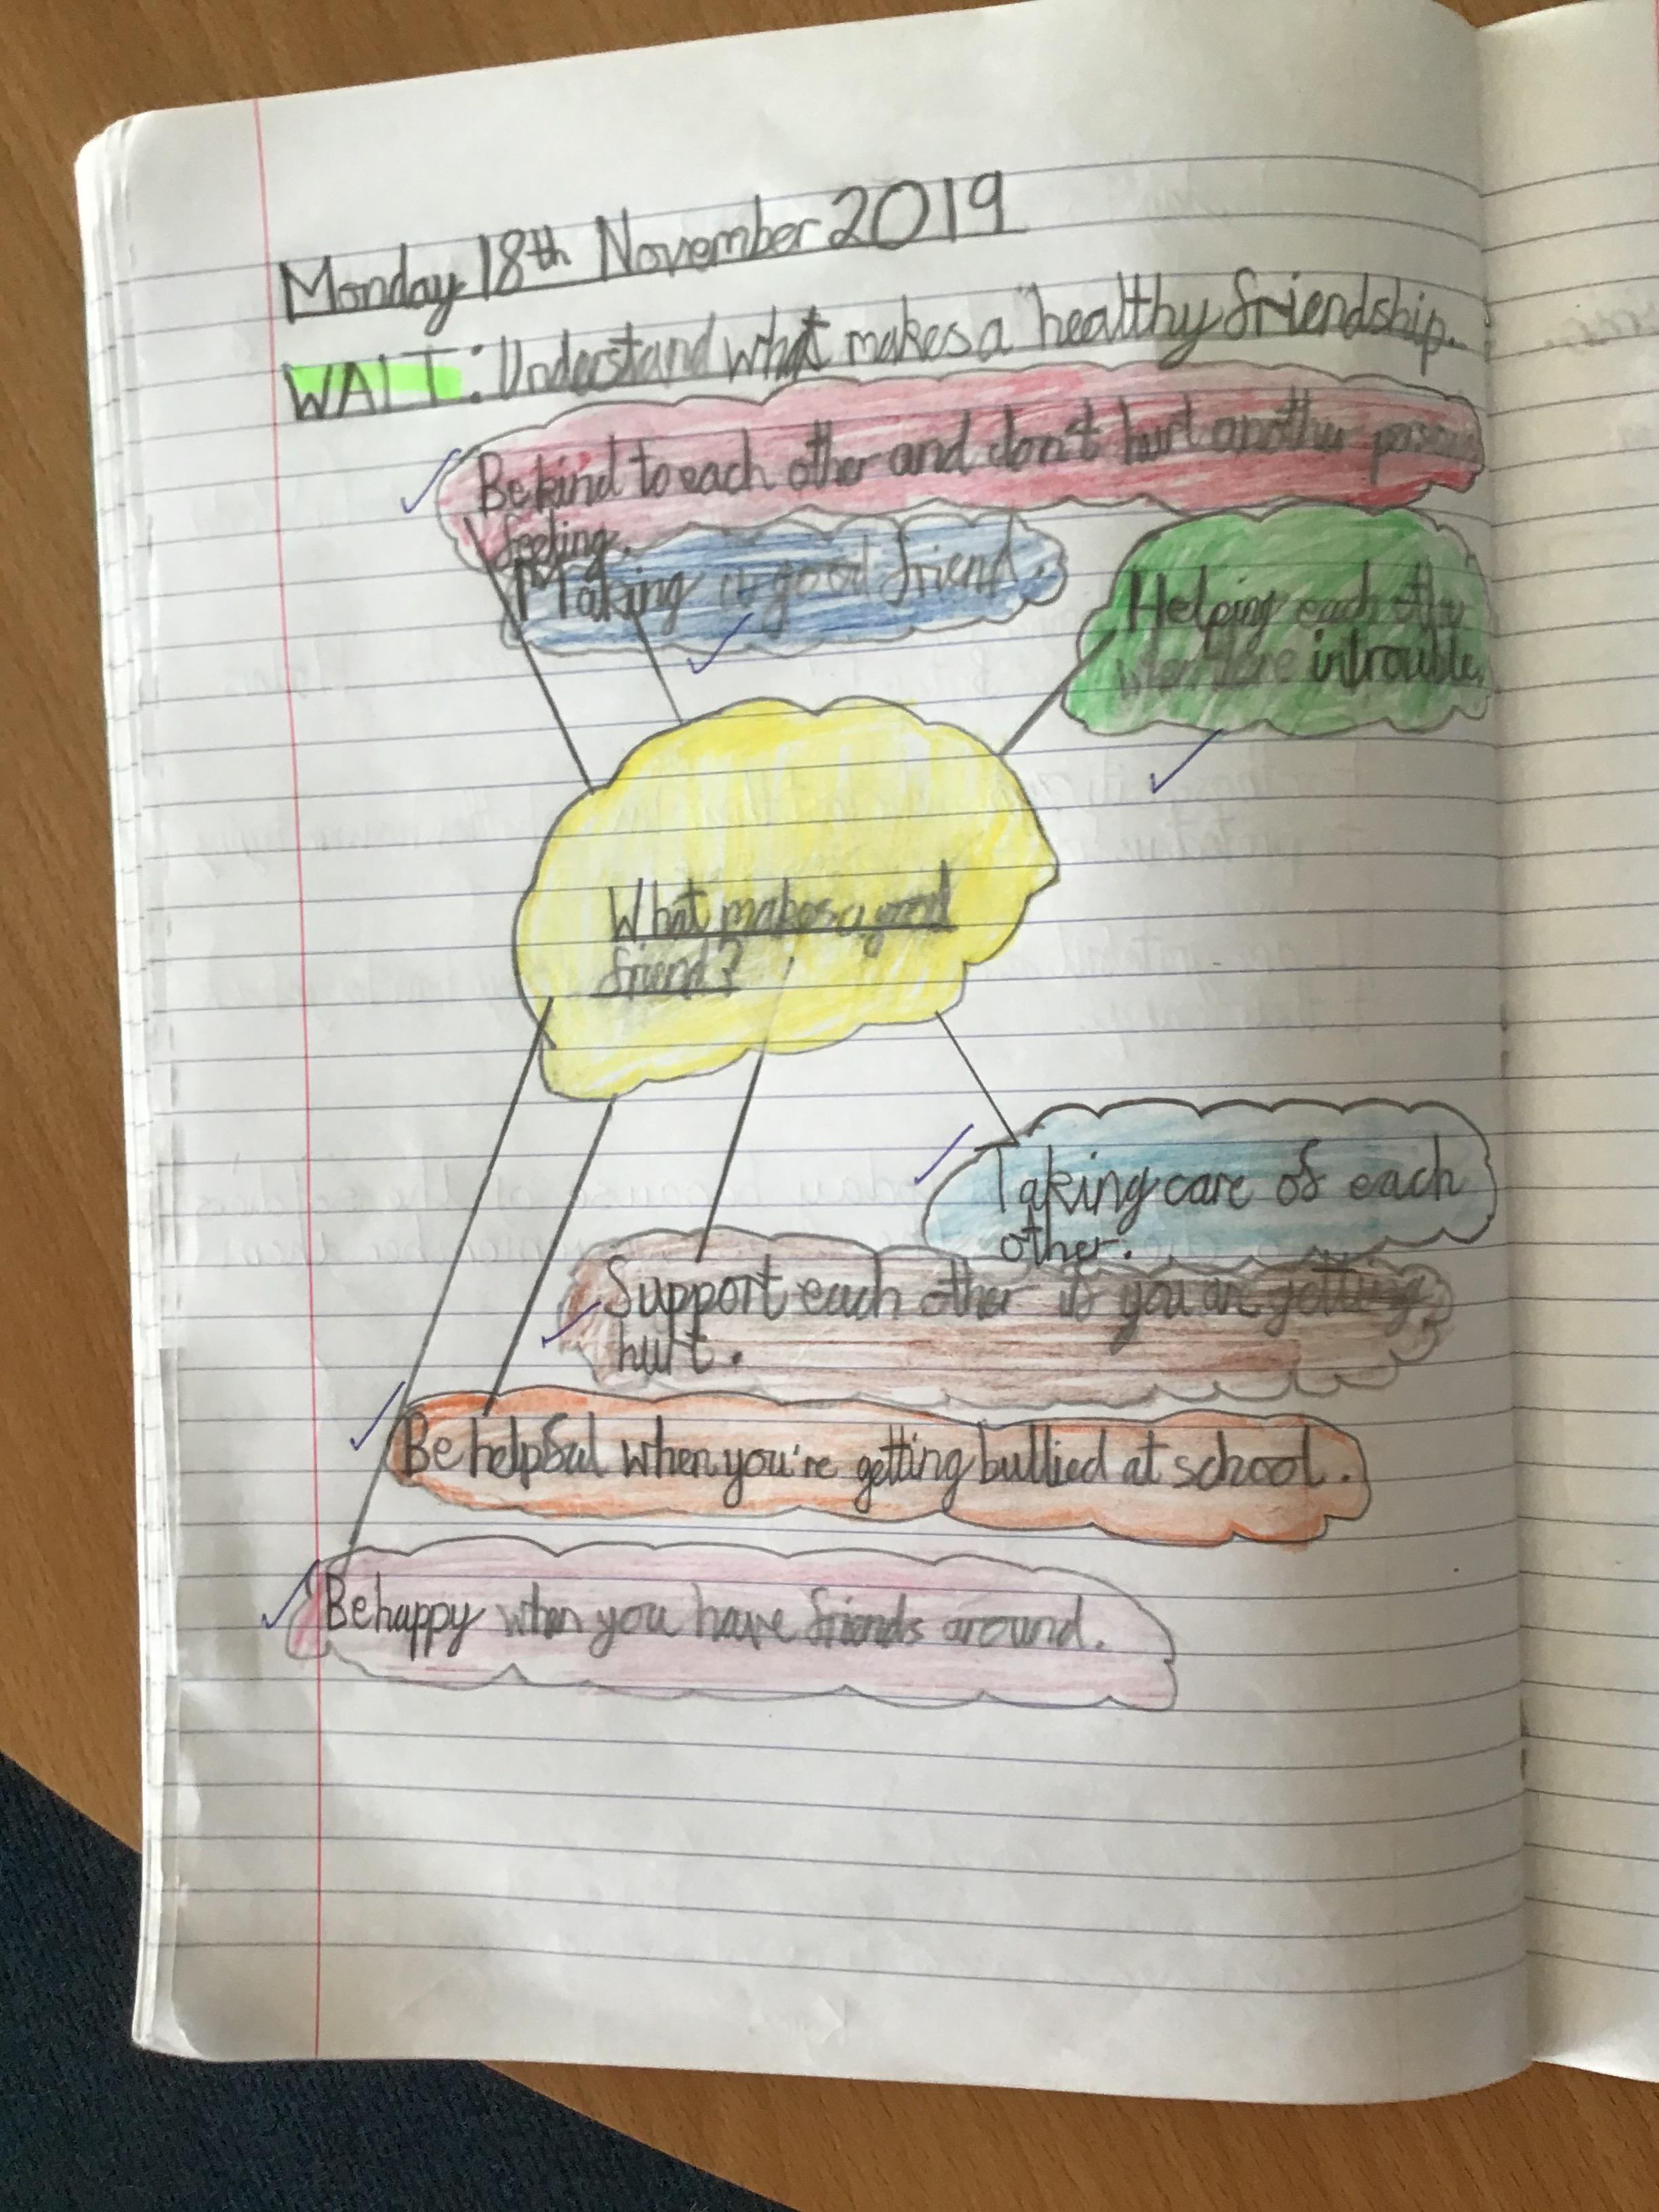 Monday 18th November 2019
WALT: Understand what makes a healthy friendship.
Be kind to each other and don't hurt another persons
feeling.
Making a good friend.
Helping each other
when in trouble.
What makes a good
friend?
Taking care of each
other.
Support each other if you are getting
hurt.
Be helpful when you're getting bullied at school.
Be happy when you have friends around.